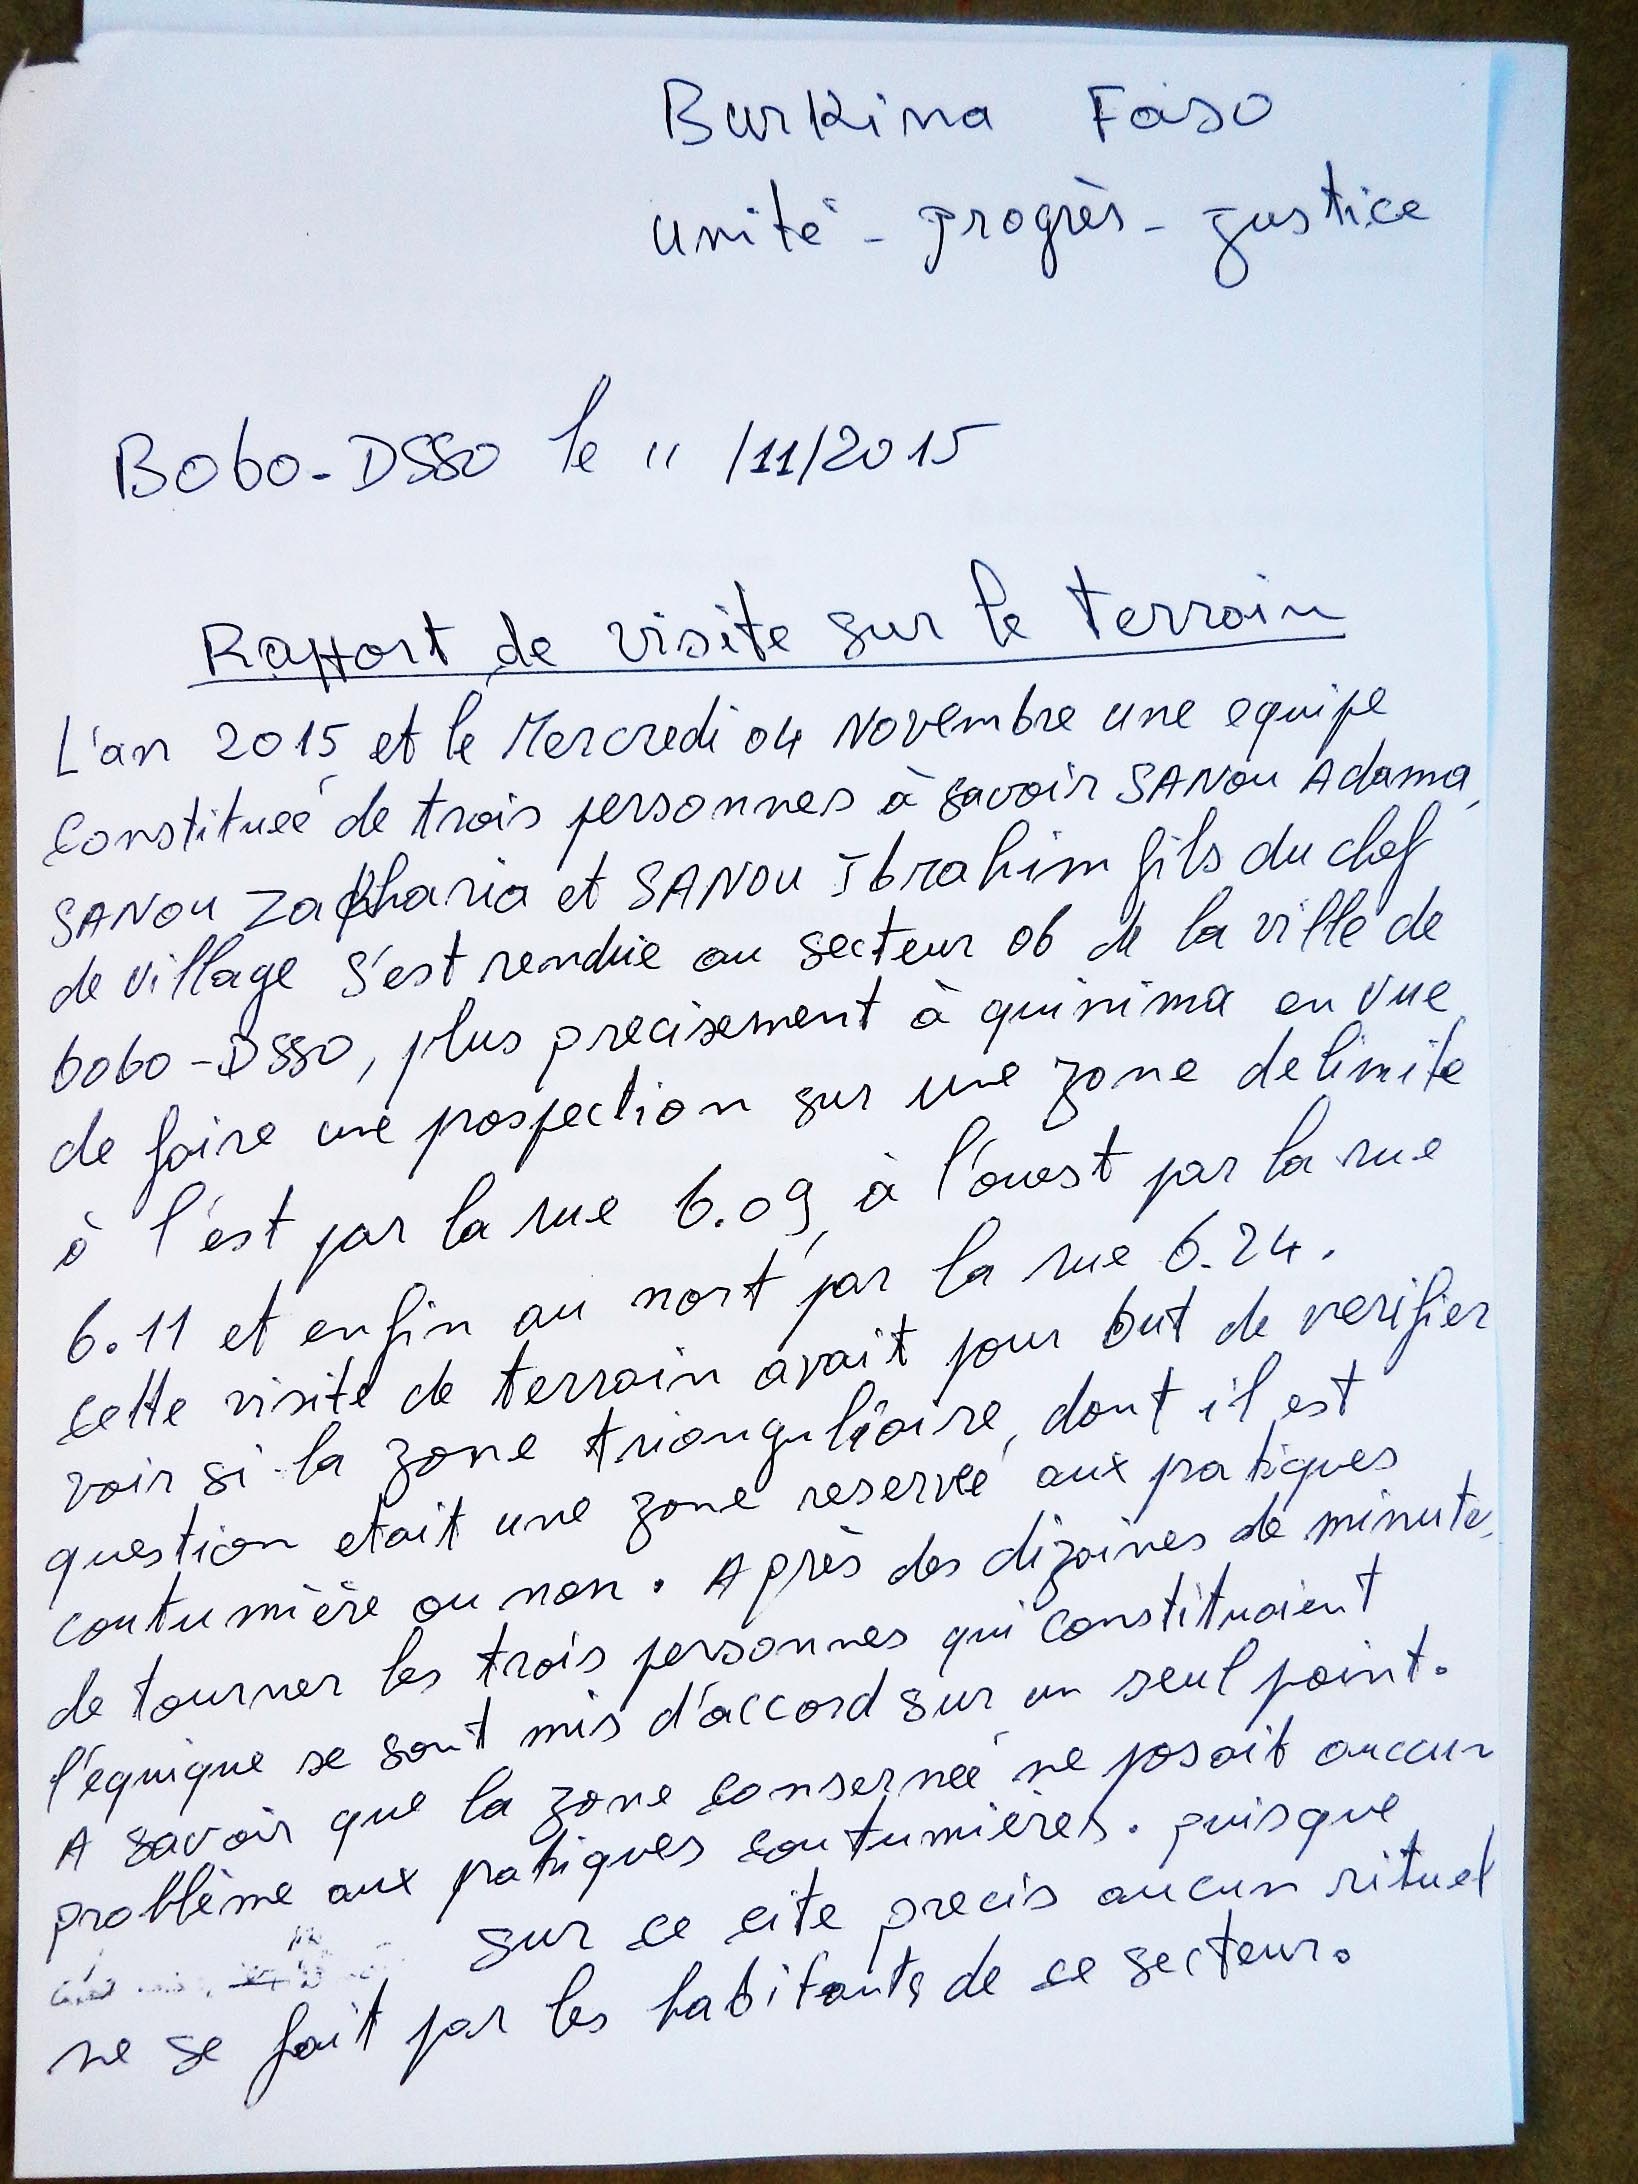 Burkina Faso
unité - progrès - justice
Bobo-DSSO le " /11/2015
Rapport de visite sur le terrain
L'an 2015 et le Mercredi 04 Novembre une equipe
constitueé de trois personnes à savoir SANOU Adama,
SANOU Zakharia et SANOU Ibrahim fils du chef
de village s'est rendue au secteur 06 de la ville de
bobo-DSSO, plus precisement à quinima en vue
de faire une prospection sur une zone delimite
à l'est par la rue 6.09, à l'ouest par la rue
6.11 et enfin au nort par la rue 6.24.
cette visite de terrain avait pour but de verifier
voir si la zone trianguliaire, dont il est
question etait une zone reserveé aux pratiques
coutumière ou non. Après des dizaines de minute,
de tourner les trois personnes qui constituaient
l'équique se sont mis d'accord sur un seul point.
A savoir que la zone conserneé ne posait aucun
problème aux pratiques coutumières. puisque
sur ce cite precis aucun rituel
ne se fait par les habitants de ce secteur.